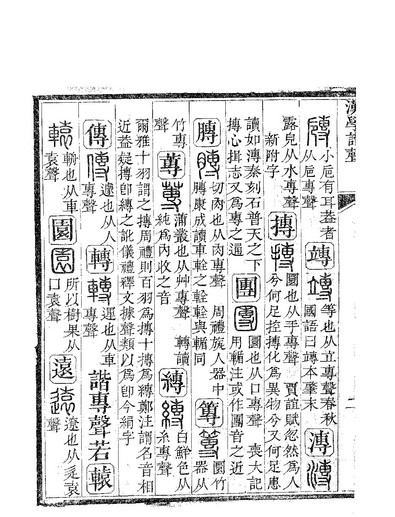 漢學諧聲
二
小巵有耳葢者
从巵專聲
竱
等也从立專聲春秋
國語曰竱本肇末
漙
露皃从水專聲
新附字
摶
圜也从手專聲 賈誼賦忽然為人
兮何足控摶化為異物兮又何足患
讀如漙秦刻石普天之下
摶心揖志又為專之通
團
圜也从囗專聲 喪大記
用輴注或作團音之近
膞
切肉也从肉專聲 周禮旊人器中
膞康成讀車輇之輇輇與輴同
篿
圜竹
器从
竹專
聲
蓴
蒲叢也从艸專聲 轉讀
純為內收之音
縳
白鮮色从
糸專聲
爾雅十羽謂之縳周禮則百羽為摶十摶為縳鄭注謂名音相
近葢疑摶即縳之訛儀禮釋文據聲類以為即今絹字
傳
遽也从人
專聲
轉
運也从車
專聲
諧專聲若
轅
輈也从車
袁聲
園
所以樹果从
囗袁聲
遠
遼也从辵袁
聲